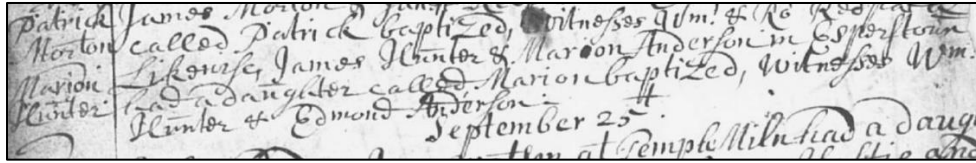 Patrick James Morton &
Morton called Patrick baptized, Witnesses Wm. & Ro
Likewise, James Hunter & Marion Anderson in Esperstoun
Marion had a daughter called Marion baptized, Witnesses Wm.
Hunter Hunter & Edmond Anderson.
September 25
at Temple Miln had a daug